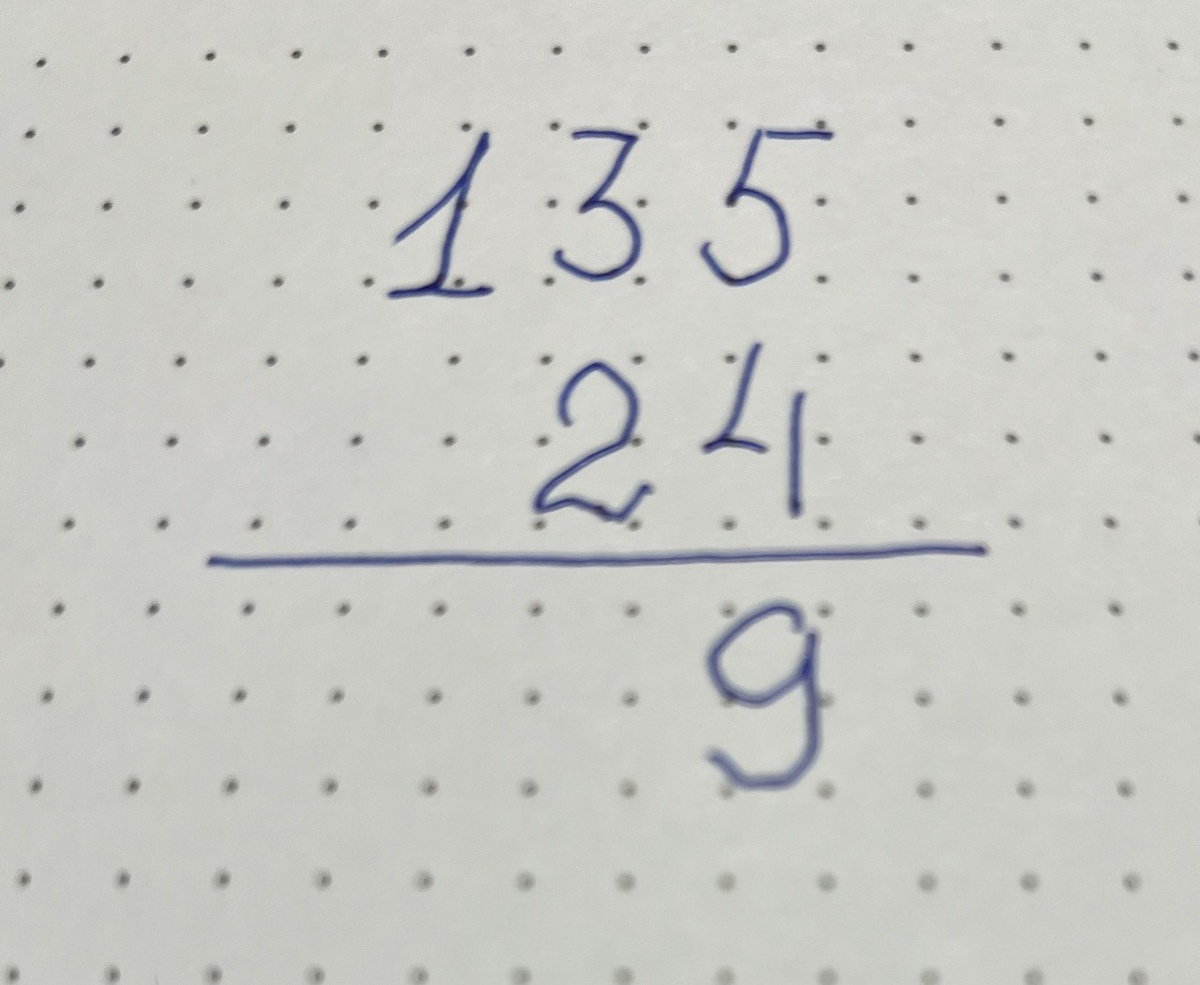 135
24
9